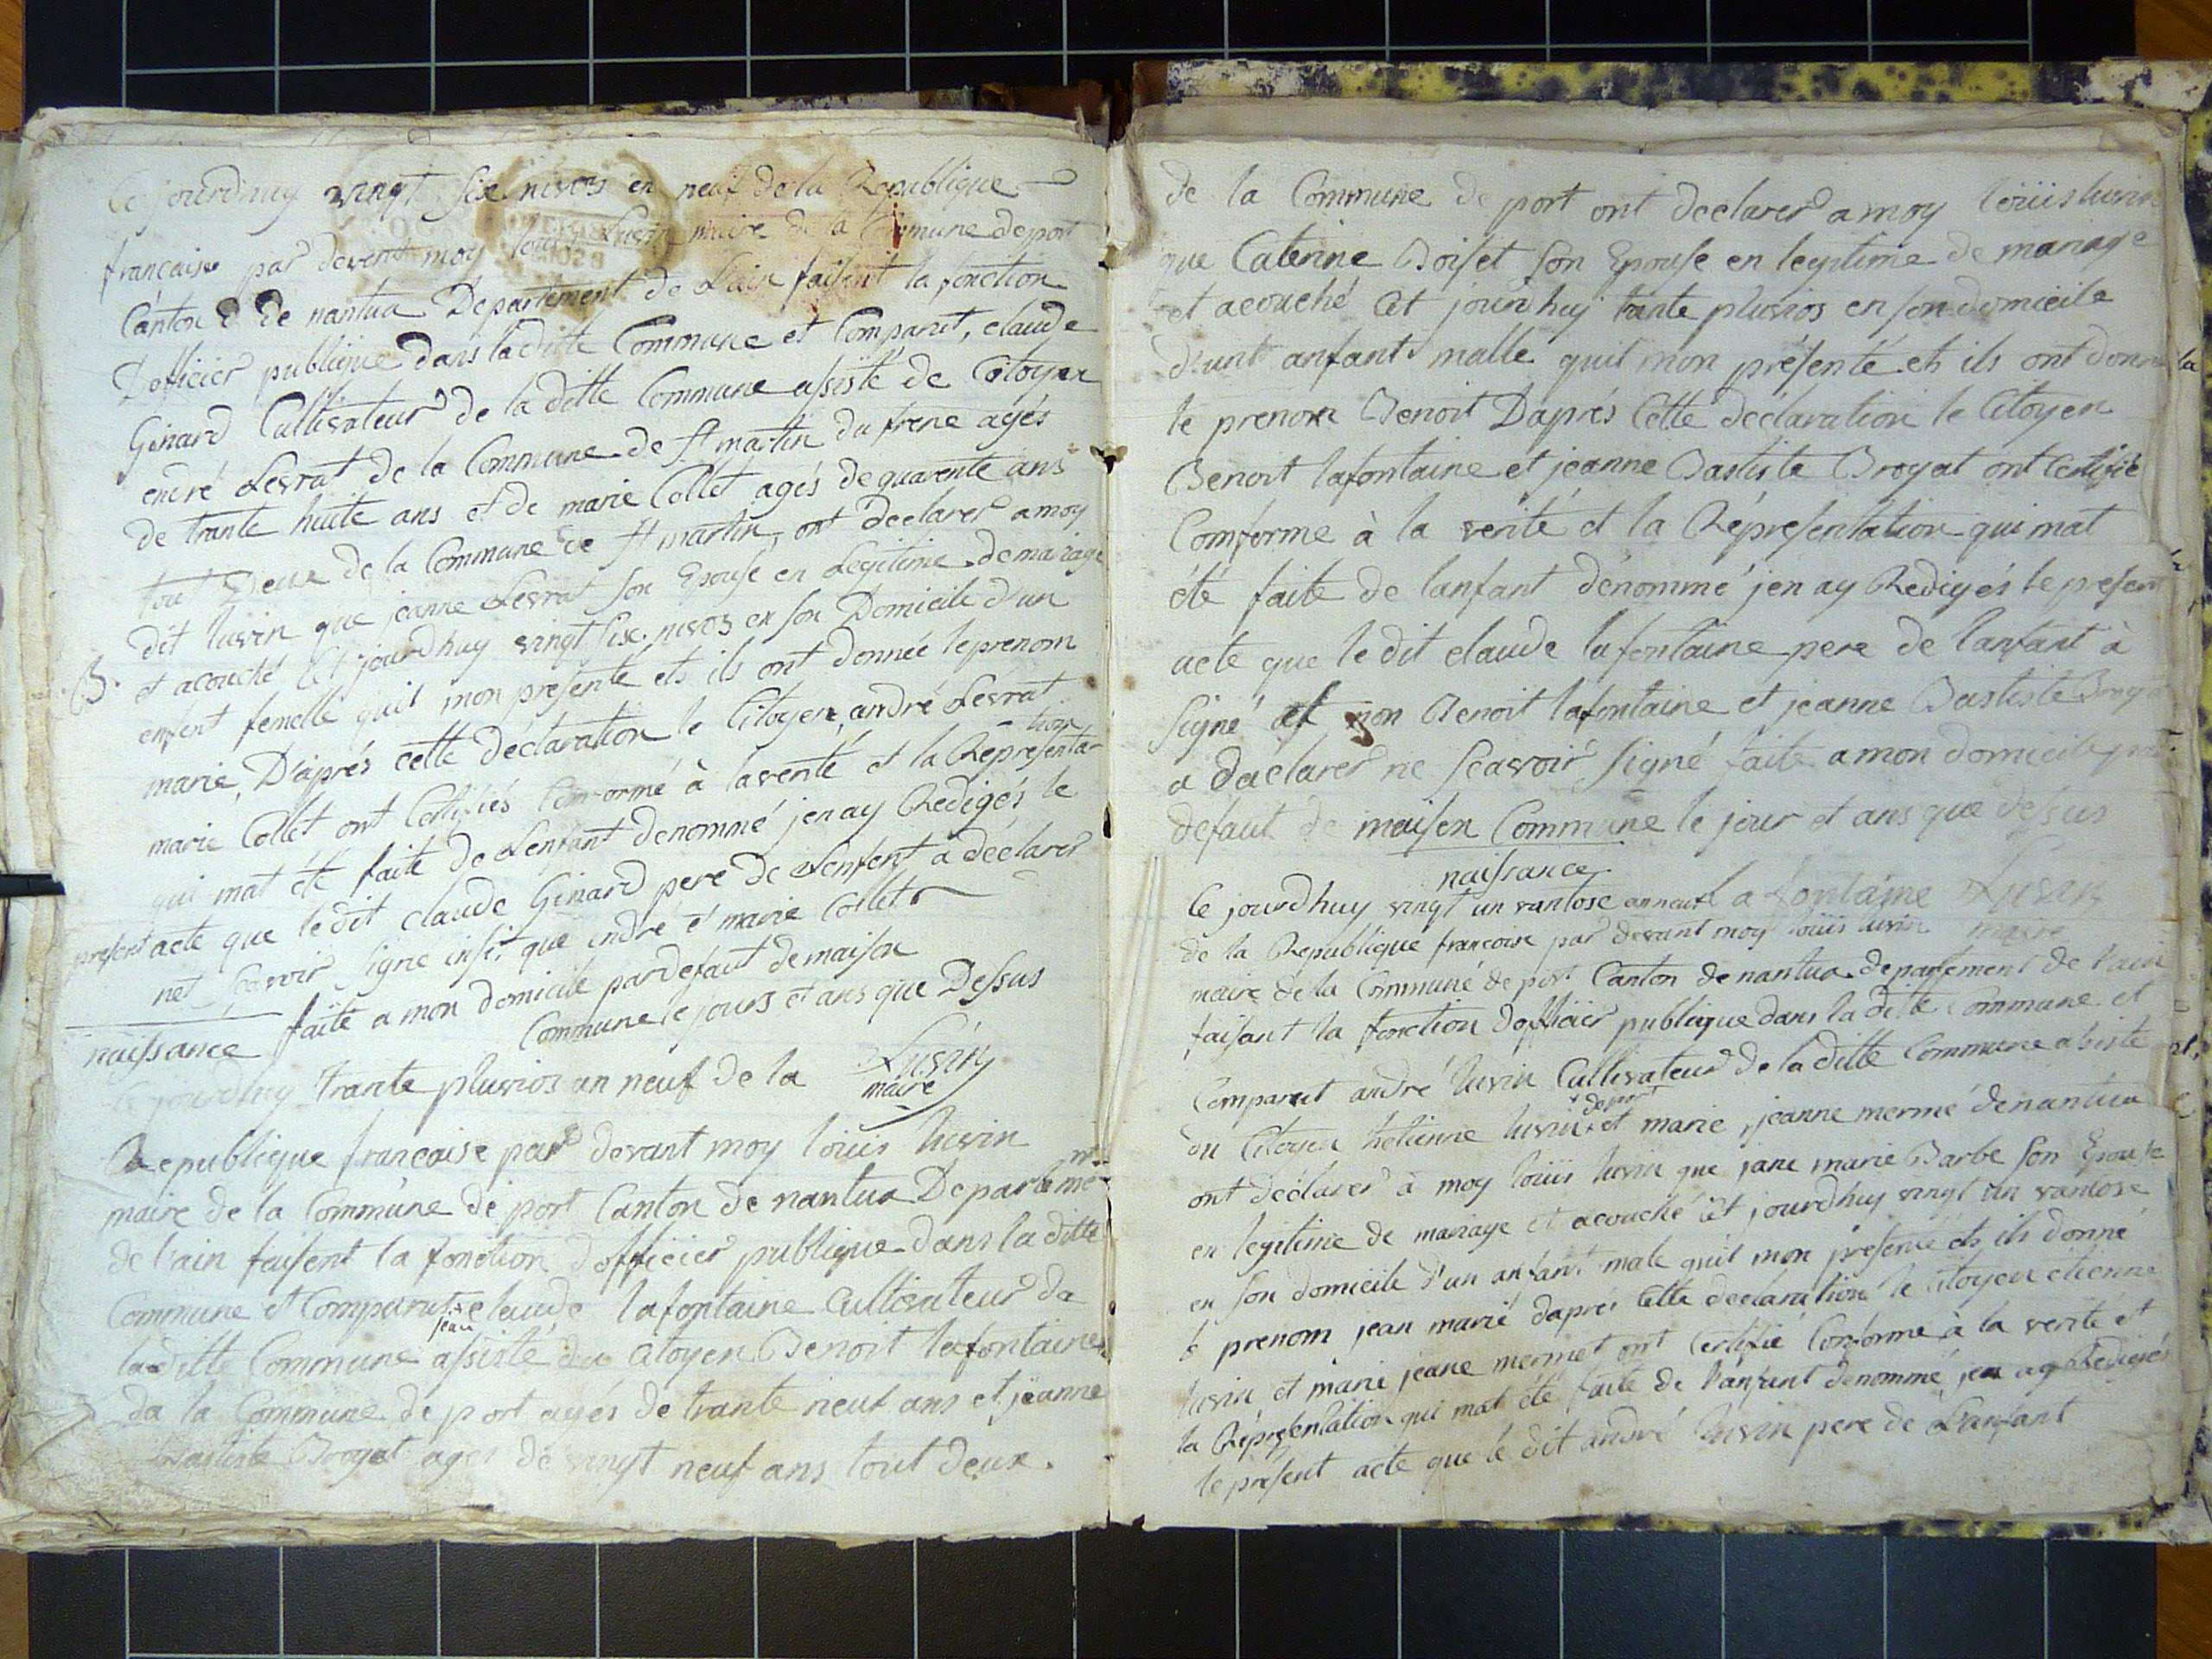 Ce jourdhuy vingt six nivos en neuf de la Republique
francaise par devent moy louis Luvin maire de la Commune de port
Canton de nantua Departement de Lain faisent la fonction
Dofficier publique dans la ditte Commune et Comparut, claude
Ginard Cultivateur de la ditte Commune assisté de Citoyen
endré Levrat de la Commune de St martin du frene agés
de trante huite ans et de marie Collet agés de quarente ans
tout Deux de la Commune de St martin, ont declarer a moy
dit luvin que jeanne Levrat son Epouse en Legitime de mariage
et acouché Cet jourdhuy vingt six nivos en son Domicile d'un
B. enfent femelle quil mon presenté ets ils ont donnée le prenom
marie, D'aprés cette déclaration le Citoyen, andré Levrat
marie Collet ont Certifiés Comformé à la verité et la Representa-
tion
qui mat été faite de Lenfant denommé jen ay Redigés le
present acte que le dit claude Ginard pere de Lenfent a déclarer
net scavoir signé insit que endré et marie Collet
faite a mon domicile par defaut de maison
Commune le jours et ans que Dessus
naissance
Luvin
maire
Ce jourdhuy trante pluvios an neuf de la
Republique francaise par devant moy loüis luvin
maire de la Commune de port Canton de nantua Departeme
nt
de l'ain faisent la fonction dofficier publique dans la ditte
Commune et Comparut claude lafontaine Cultivateur da
jean
la ditte Commune assisté du Citoyen Benoit lafontaine
da la Commune de port agés de trante neuf ans et jeanne
Bastiste Broyat ages de vingt neuf ans tout deux.
de la Commune de port ont declarer a moy loüis luvin
que Caterine Boiset son Epouse en legitime de mariage
et acouché Cet jourdhuy trante pluvios en son domicile
d'unt anfant malle quil mon présenté ets ils ont donné
le prenom Benoit Daprés Cette déclaration le Citoyen
Benoit lafontaine et jeanne Bastiste Broyat ont Certifié
Comforme à la verité et la Répresentation qui mat
été faite de lanfant dénommé jen ay Redigés le present
acte que le dit claude lafontaine pere de lanfant à
signé et non Benoit lafontaine et jeanne Bastiste Broyat
a daclarer ne scavoir signé faite a mon domicile par
defaut de maison Commune le jour et ans que dessus
naissance
la fontaine Luvin
maire
Ce jourdhuy vingt un vantose an neuf
de la Republique francoise par devant moy loüis luvin
maire de la Commune de port Canton de nantua departement de l'ain
faisant la fonction dofficier publique dans la dite Commune et
Comparut andré luvin Cultivateur de la ditte Commune assisté
de port
du Citoyen hetienne luvin et marie, jeanne mermé de nantua
ont déclarer à moy loüis luvin que jane marie Barbe son Epouse
en legitime de mariage et acouché Cet jourdhuy vingt un vantose
en son domicile d'un anfant male quil mon presenté ets ils donné
le prenom jean marié daprés Cette declaration le Citoyen etienne
luvin et marie jeane mermet ont Certifié Conforme à la verité et
la Répresentation qui mat été faite de l'anfant denommé, jen ay Redigés
le present acte que le dit andré luvin pere de L'anfant